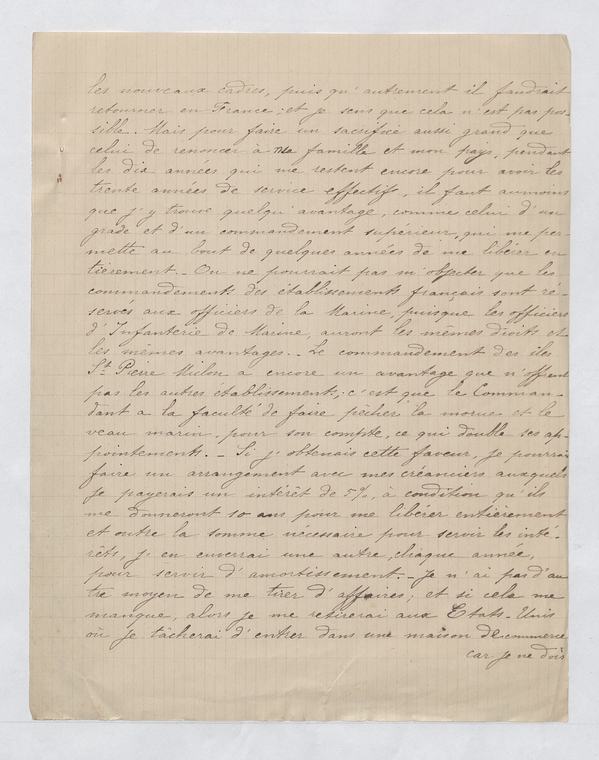 les nouveaux cadres, puis qu'autrement il faudrait
retourner en France; et je sens que cela n'est pas pos-
sible. Mais pour faire un sacrifice aussi grand que
celui de renoncer à ma famille et mon pays, pendant
les dix années qui me restent encore pour avoir les
trente années de service effectifs, il faut au moins
que j'y trouve quelqu'avantage, comme celui d'un
grade et d'un commandement supérieur, qui me per-
mette au bout de quelques années de me libérer en
tièrement. - On ne pourrait pas m'objecter que les
commandements des établissements français sont ré-
servés aux officiers de la Marine, puisque les officiers
d'Infanterie de Marine, auront les mêmes droits et
les mêmes avantages. - Le commandement des îles
St. Pierre Milon à encore un avantage que n'offrent
pas les autres établissement; c'est que le Comman-
dant a la faculté de faire pêcher la morue et le
veau marin, pour son compte, ce qui double ses ap-
pointements. - Si j'obtenais cette faveur, je pourrai
faire un arrangement avec mes créanciers auxquels
je payerais un intérêt de 5%, à condition qu'ils
me donneront 10 ans pour me libérer entièrement
et outre la somme nécessaire pour servir les inté-
rêts, j'en enverrai une autre, chaque année,
pour servir d'amortissement. - Je n'ai pas d'au
tre moyen de me tirer d'affaires; et si cela me
manque, alors je me retirerai aux Etats-Unis
où je tâcherai d'entrer dans une maison de commerce
car je ne dois